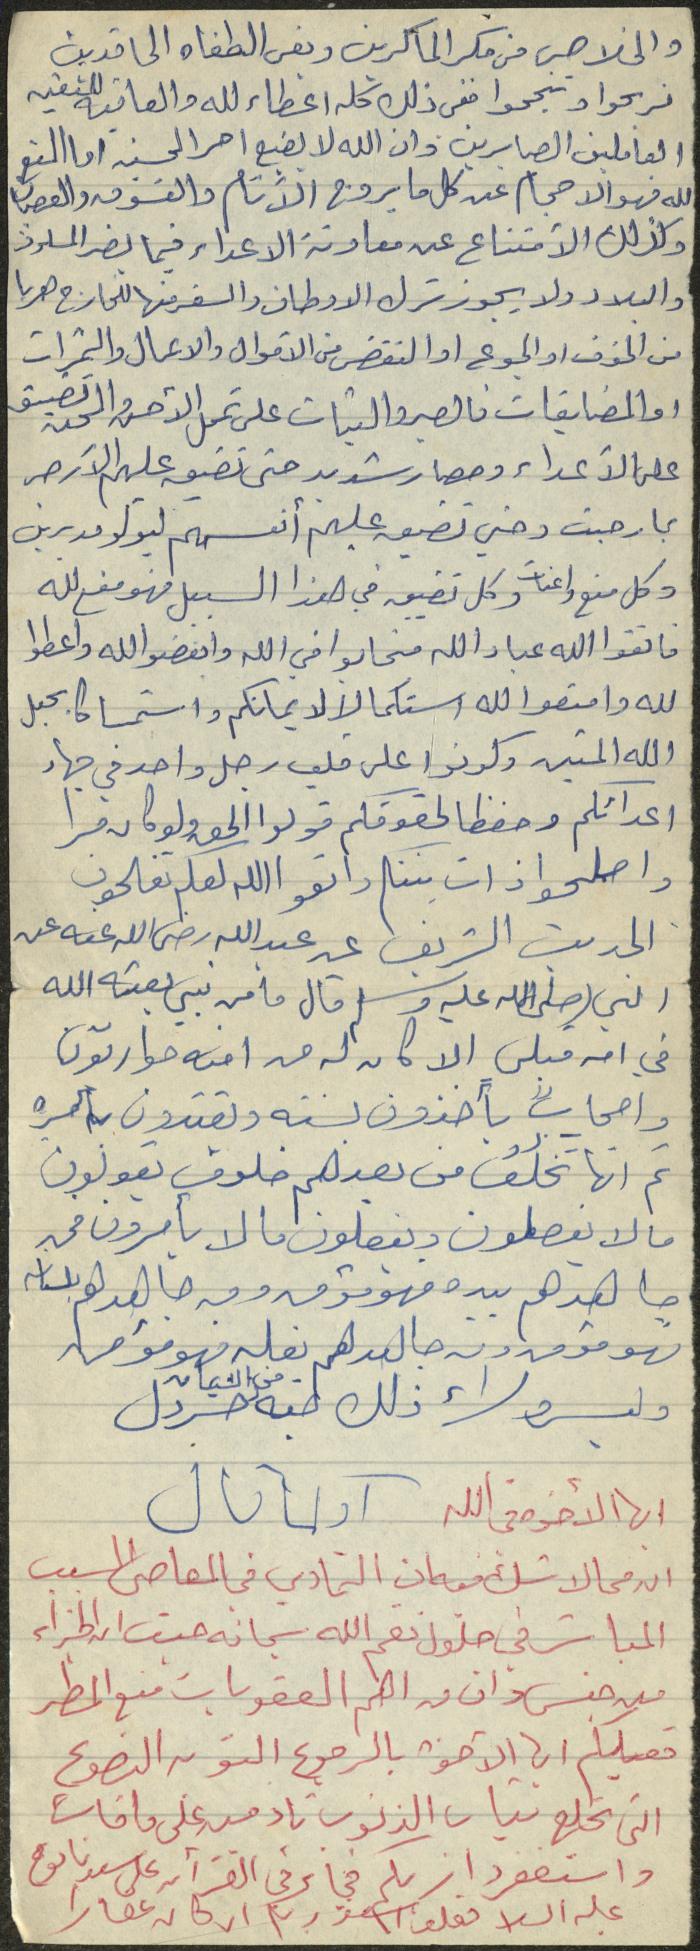 والخلاص من مكر الماكرين وبغي الطغاة الحاقدين
فربحوا ونجحوا ففي ذلك كله اعطاء لله والعاقبة للمتقين
العاملين الصابرين وان الله لا يضيع اجر المحسنين اما المنع
لله فهو الاحجام عن كل ما يروج الآثام والفسوق والعصيان
وكذلك الامتناع عن معاونة الاعداء فيما يضر
والبلاد ولا يجوز ترك الاوطان والسفر منها للخارج هربا
من الخوف او الجوع او النقص من الاموال والاعمال والثمرات
او المضايقات فالصبر والثبات على تحمل الأحن والمحن تضييق
على الأعداء وحصار شديد حتى تضيق عليهم الأرض
بما رحبت وحتى تضيق عليهم أنفسهم ليولوا مدبرين
وكل منع واعنات وكل تضييق في هذا السبيل فهو منع لله
فاتقوا الله عباد الله فتحابوا في الله وابغضوا لله واعطوا
لله وامنعوا لله استكمالاً لايمانكم واستمساكا بحبل
الله المتين وكونوا على قلب رجل واحد في جهاد
اعدائكم وحفظا لحقوقكم قولوا الحق ولو كان مرا
واصلحوا ذات بينكم واتقوا الله لعلكم تفلحون
الحديث الشريف عن عبد الله رضي الله عنه عن
النبي صلى الله عليه وسلم قال ما من نبي بعثه الله
في امة قبلي الا كان له من امته حواريون
واصحاب يأخذون بسنته ويقتدون بأمره
ثم انها تخلف من بعدهم خلوف يقولون
ما لا يفعلون ويفعلون ما لا يأمرون فمن
جاهدهم بيده فهو مؤمن ومن جاهدهم بلسانه
فهو مؤمن ومن جاهدهم بقلبه فهو مؤمن
وليس وراء ذلك من الايمان حبة خردل
ايها الأخوة في الله او كما قال
ان مما لا شك فيه ان التمادي في المعاصي السبب
المباشر في حلول نقم الله سبحانه حيث ان الجزاء
من جنس وان من اهم العقوبات منع المطر
فعليكم ايها الأخوة بالرجوع التوبة النصوح
التي تخلع ثياب الذنوب نادمين على ما فات
واستغفروا ربكم في القرآن على سيدنا نوح
عليه السلام فقلت استغفروا ربكم انه كان غفارا